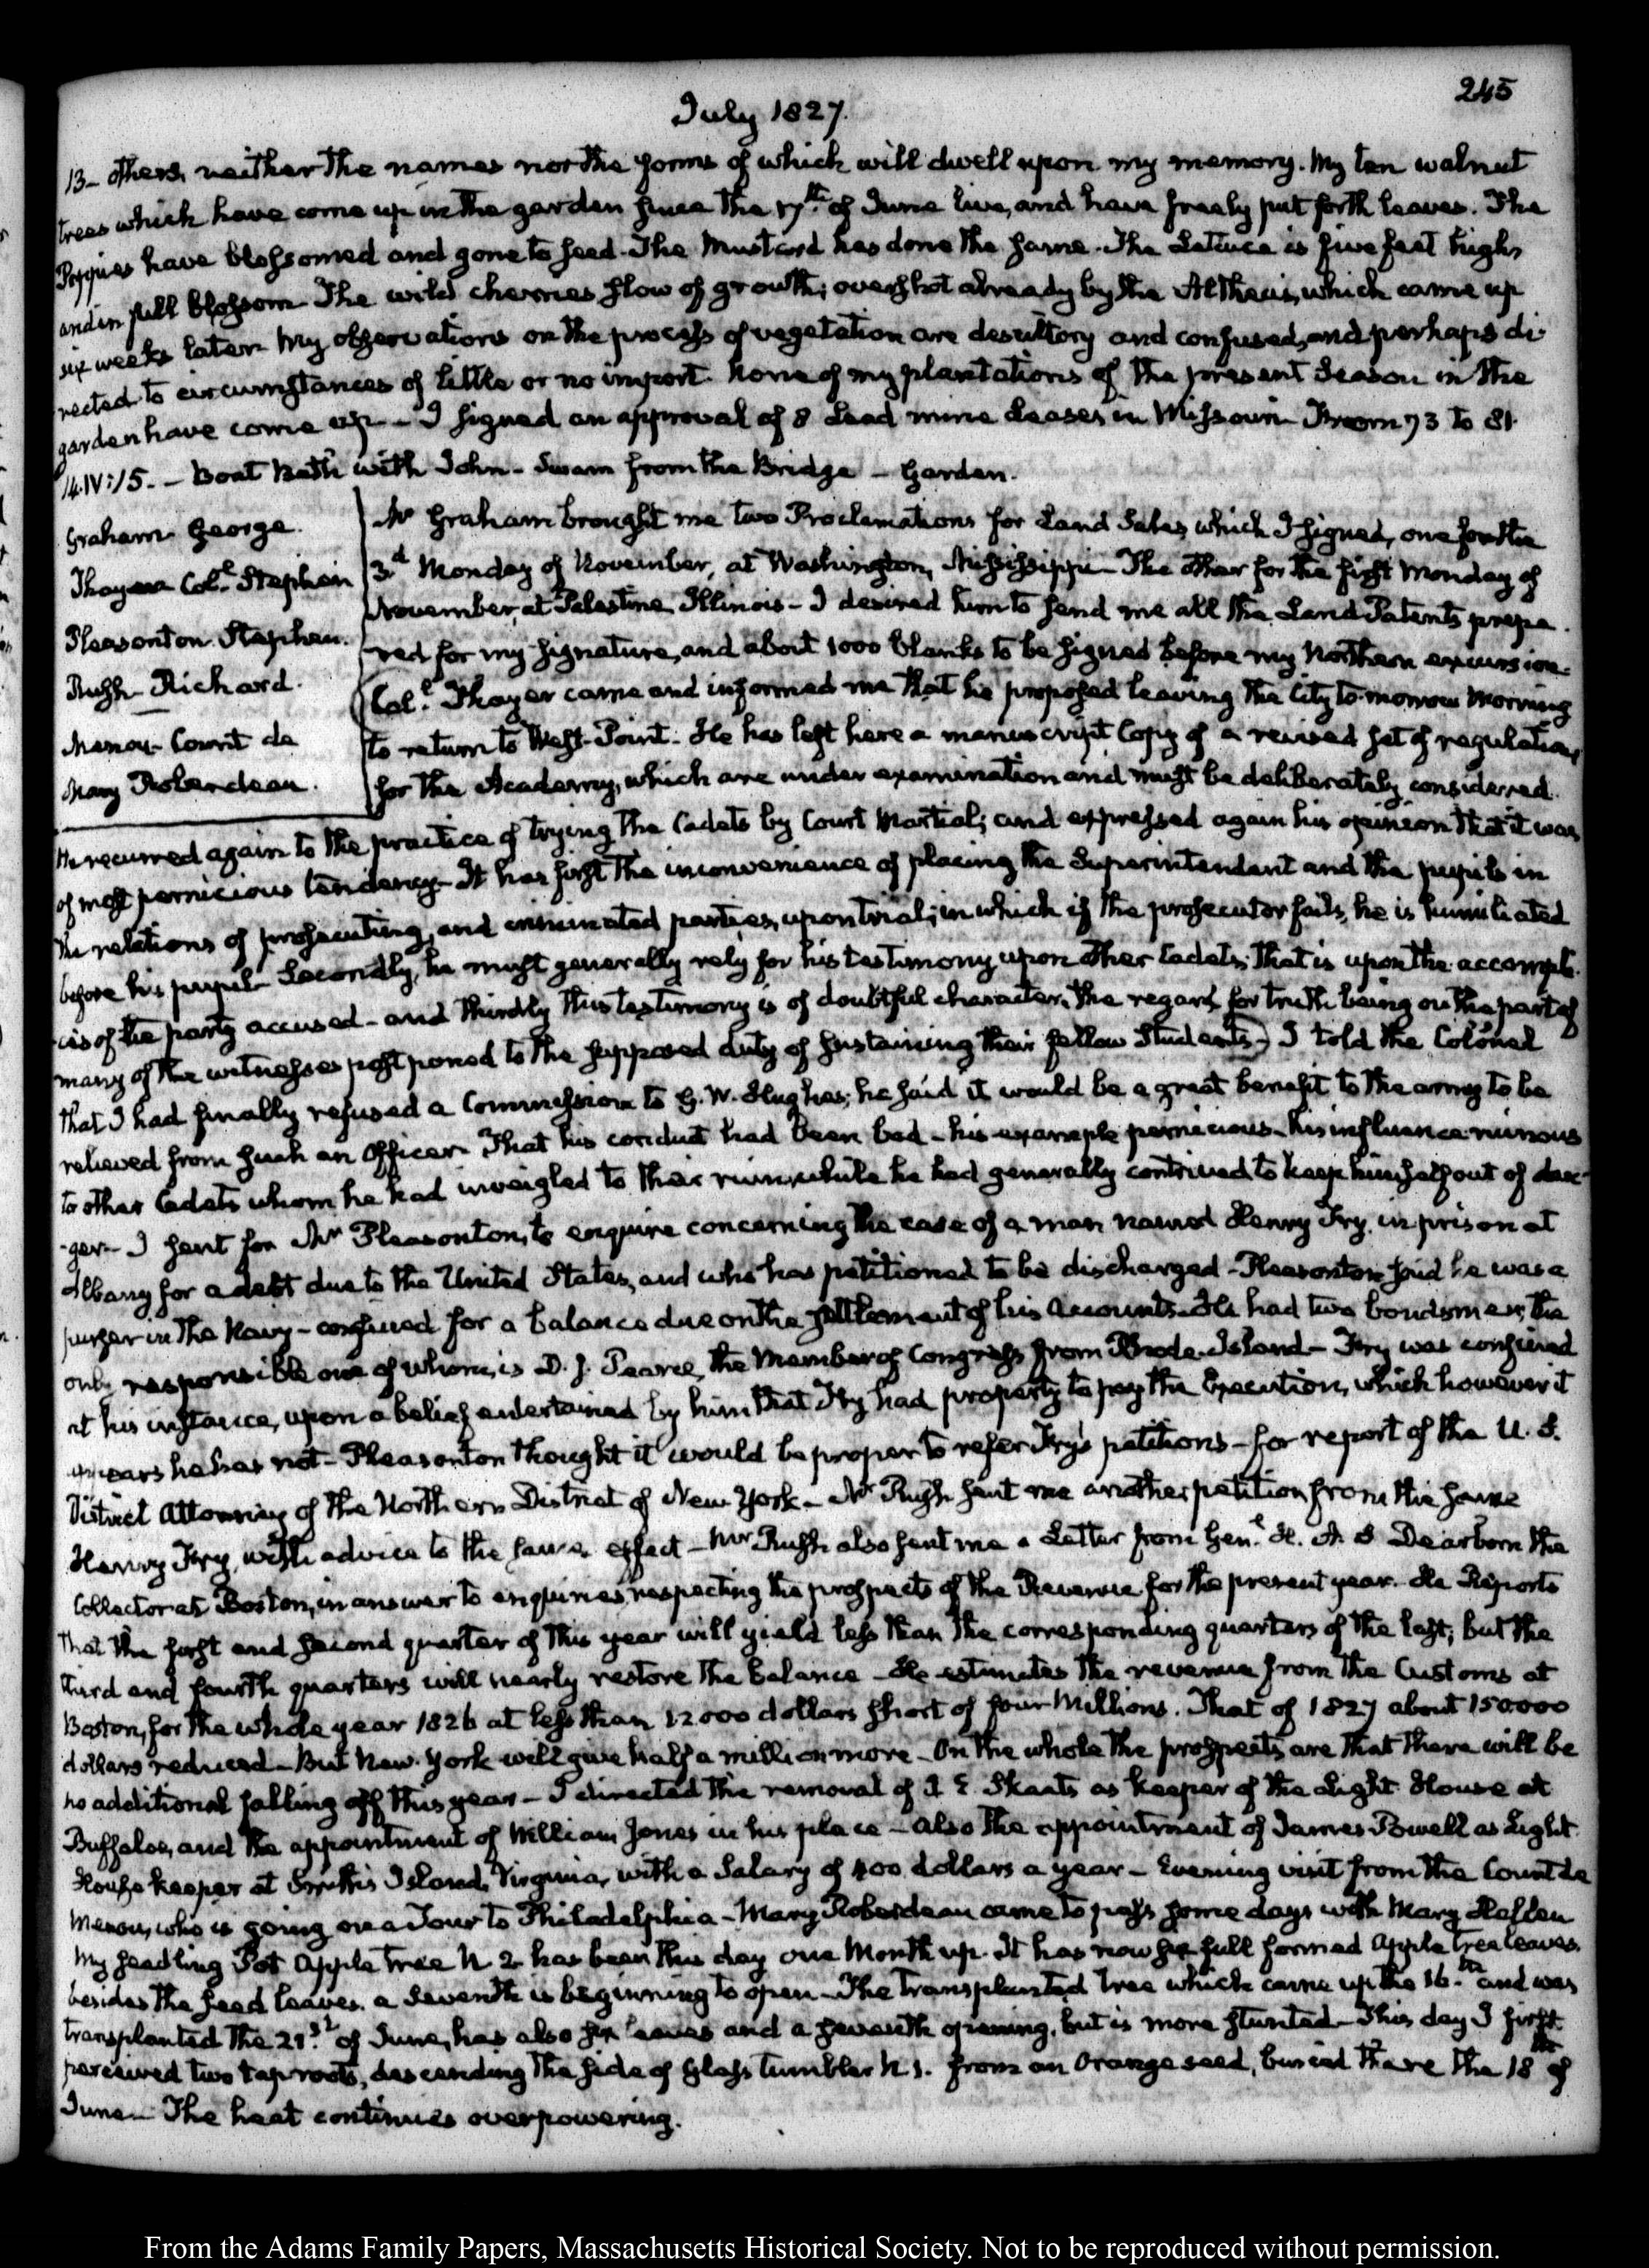 245
July 1827.
13- others, neither the names nor the forms of which will dwell upon my memory. My ten walnut
trees which have come up in the garden since the 17th. of June live, and have freely put forth leaves. The
Poppies have blossomed and gone to seed. The Mustard has done the same. The Lettuce is five feet high,
and in full blossom. The wild cherries slow of growth; overshot already by the Altheas, which came up
six weeks later. My observations on the process of vegetation are desultory and confused, and perhaps di-
rected to circumstances of little or no import. None of my plantations of the present Season in the
garden have come up - I signed an approval of 8 Lead mine Leases in Missouri From 73 to 81.
14. IV:15. - Boat Bath with John - Swam from the Bridge - Garden.
Graham George.
Thayer Col.l Stephen
Pleasonton. Stephen.
Rush Richard.
Menou. Count de
Mary Roberdeau.
Mr Graham brought me two Proclamations for Land Sales, which I signed, one for the
3d Monday of November, at Washington, Mississippi - The other for the first Monday of
November, at Palestine, Illinois - I desired him to send me all the Land Patents prepa-
red for my signature, and about 1000 blanks to be signed before my Northern excursion.
Col.l Thayer came and informed me that he proposed leaving the City to-morrow Morning
to return to West-Point. He has left here a manuscript Copy of a revised set of regulations
for the Academy, which are under examination and must be deliberately considered.
He recurred again to the practice of trying the Cadets by Court Martial; and expressed again his opinion that it was
of most pernicious tendency - It has first the inconvenience of placing the Superintendant and the pupils in
the relations of prosecuting, and criminated parties, upon trial; in which if the prosecutor fails, he is humiliated
before his pupil. Secondly, he must generally rely for his testimony upon other Cadets; that is upon the accompli-
ces of the party accused - and thirdly this testimony is of doubtful character, the regard for truth being on the part of
many of the witnesses postponed to the supposed duty of sustaining their fellow Students) I told the Colonel
that I had finally refused a Commission to G. W. Hughes; he said it would be a great benefit to the army to be
relieved from such an Officer. That his conduct had been bad - his example pernicious - his influence ruinous
to other Cadets whom he had inveigled to their ruin, while he had generally contrived to keep himself out of dan-
ger - I sent for Mr Pleasonton, to enquire concerning the case of a man named Henry Fry. in prison at
Albany for a debt due to the United States, and who has petitioned to be discharged - Pleasonton said he was a
purser in the Navy - confined for a balance due on the settlement of his Accounts. He had two bondsmen, the
only responsible one of whom, is D. J. Pearce, the Member of Congress from Rhode-Island - Fry was confined
at his instance, upon a belief entertained by him that Fry had property to pay the Execution, which however it
appears he has not - Pleasonton thought it would be proper to refer Fry's petitions - for report of the U. S.
District Attorney of the Northern District of New York - Mr Rush sent me another petition from the same
Henry Fry, with advice to the same effect - Mr Rush also sent me a Letter from Gen.l H. A. S Dearborn the
Collector at Boston, in answer to enquiries, respecting the prospects of the Revenue for the present year. He Reports
that the first and second quarter of this year will yield less than the corresponding quarters of the last; but the
third and fourth quarters will nearly restore the balance - He estimates the revenue from the Customs at
Boston, for the whole year 1826 at less than 12000 dollars short of four Millions. That of 1827 about 150000
dollars reduced - But New-York will give half a million more - On the whole the prospects are that there will be
no additional falling off this year - I directed the removal of J E. Skaats as keeper of the Light House at
Buffaloe, and the appointment of William Jones in his place - also the appointment of James Powell as Light
House keeper at Smith's Island, Virginia, with a Salary of 400 dollars a year - Evening visit from the Count de
Menou, who is going on a Tour to Philadelphia - Mary Roberdeau came to pass some days with Mary Hellen
My seedling Pot Apple tree N 2 has been this day one Month up. It has now six full formed Apple tree leaves
besides the seed leaves. a seventh is beginning to open - The transplanted tree which came up the 16.th and was
transplanted the 21st. of June, has also six leaves and a seventh opening, but is more stunted - This day I first
perceived two taproots, descending the side of Glass tumbler N 1. from an Orange seed, buried there the 18th of
June - The heat continues overpowering.
From the Adams Family Papers, Massachusetts Historical Society. Not to be reproduced without permission.